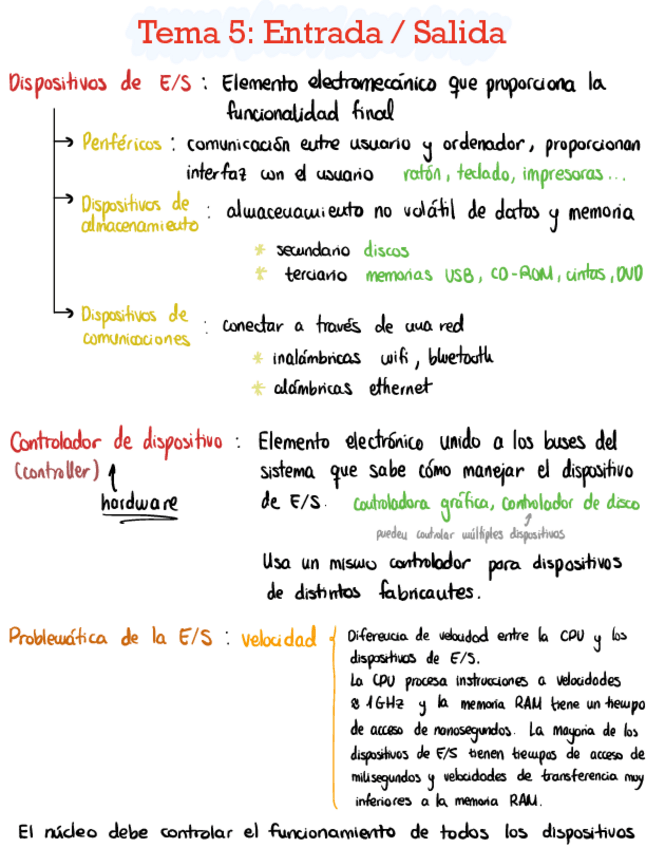 Tema 5: Entrada / Salida
Dispositivos de E/S : Elemento electromecánico que proporciona la
funcionalidad final
→ Periféricos : comunicación entre usuario y ordenador, proporcionan
interfaz con el usuario ratón, teclado, impresoras...
→ Dispositivos de
almacenamiento : almacenamiento no volátil de datos y memoria
* secundario discos
* terciario memorias USB, CD-ROM, cintas, DVD
→ Dispositivos de
comunicaciones : conectar a través de una red
* inalámbricas wifi, bluetooth
* alámbricas ethernet
Controlador de dispositivo : Elemento electrónico unido a los buses del
(controller) sistema que sabe cómo manejar el dispositivo
hardware de E/S. controladora gráfica, controlador de disco
pueden controlar múltiples dispositivos
Usa un mismo controlador para dispositivos
de distintos fabricantes.
Problemática de la E/S : velocidad
Diferencia de velocidad entre la CPU y los
dispositivos de E/S.
La CPU procesa instrucciones a velocidades
≈ 1GHz y la memoria RAM tiene un tiempo
de acceso de nanosegundos. La mayoría de los
dispositivos de E/S tienen tiempos de acceso de
milisegundos y velocidades de transferencia muy
inferiores a la memoria RAM.
El núcleo debe controlar el funcionamiento de todos los dispositivos